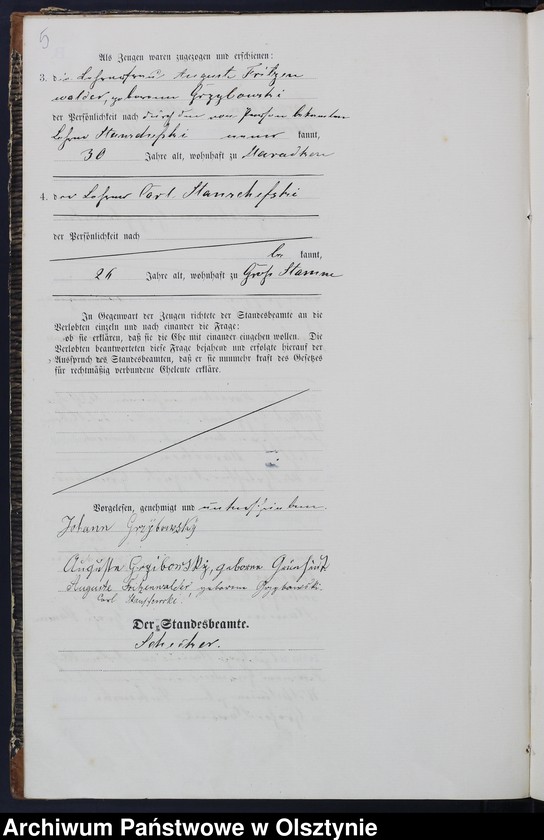 5
Als Zeugen waren zugezogen und erschienen:
3. die Lehrersfrau Auguste Fritzen
walder, geborene Grzybowski
der Persönlichkeit nach durch den von Person bekannten
Lehrer kannt,
30 Jahre alt, wohnhaft zu Maradtken
4. der Lehrer Carl
der Persönlichkeit nach
be kannt,
26 Jahre alt, wohnhaft zu Groß
In Gegenwart der Zeugen richtete der Standesbeamte an die
Verlobten einzeln und nach einander die Frage:
ob sie erklären, daß sie die Ehe mit einander eingehen wollen. Die
Verlobten beantworteten diese Frage bejahend und erfolgte hierauf der
Ausspruch des Standesbeamten, daß er sie nunmehr kraft des Gesetzes
für rechtmäßig verbundene Eheleute erkläre.
Vorgelesen, genehmigt und unterschrieben
Johann Grzybowsky
Auguste Grzibowsky, geborene
Auguste Fritzenwalder, geborene Grzybowski.
Carl
Der Standesbeamte.
Archiwum Państwowe w Olsztynie